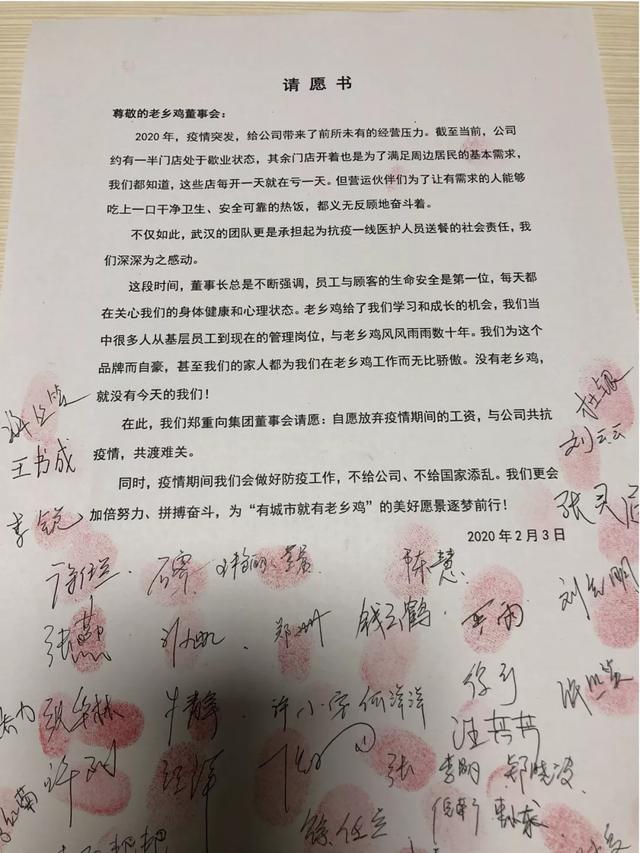 请愿书
尊敬的老乡鸡董事会：
2020年，疫情突发，给公司带来了前所未有的经营压力。截至当前，公司
约有一半门店处于歇业状态，其余门店开着也是为了满足周边居民的基本需求，
我们都知道，这些店每开一天就在亏一天。但营运伙伴们为了让有需求的人能够
吃上一口干净卫生、安全可靠的热饭，都义无反顾地奋斗着。
不仅如此，武汉的团队更是承担起为抗疫一线医护人员送餐的社会责任，我
们深深为之感动。
这段时间，董事长总是不断强调，员工与顾客的生命安全是第一位，每天都
在关心我们的身体健康和心理状态。老乡鸡给了我们学习和成长的机会，我们当
中很多人从基层员工到现在的管理岗位，与老乡鸡风风雨雨数十年。我们为这个
品牌而自豪，甚至我们的家人都为我们在老乡鸡工作而无比骄傲。没有老乡鸡，
就没有今天的我们！
在此，我们郑重向集团董事会请愿：自愿放弃疫情期间的工资，与公司共抗
疫情，共渡难关。
同时，疫情期间我们会做好防疫工作，不给公司、不给国家添乱。我们更会
加倍努力、拼搏奋斗，为“有城市就有老乡鸡”的美好愿景逐梦前行！
2020年2月3日
王书成
刘云云
李锐
陈慧
张燕
钱云鹤
牛静
许小宝
何洋洋
汪芳芳
张
李明
郑晓波